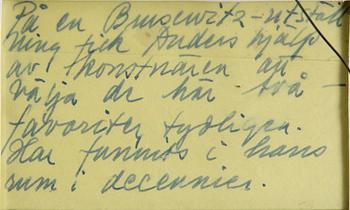 På en Brusewitz-utställ
ning fick Anders hjälp
av konstnären att
välja de här två -
favoriter, tydligen.
Har funnits i hans
rum i decennier.